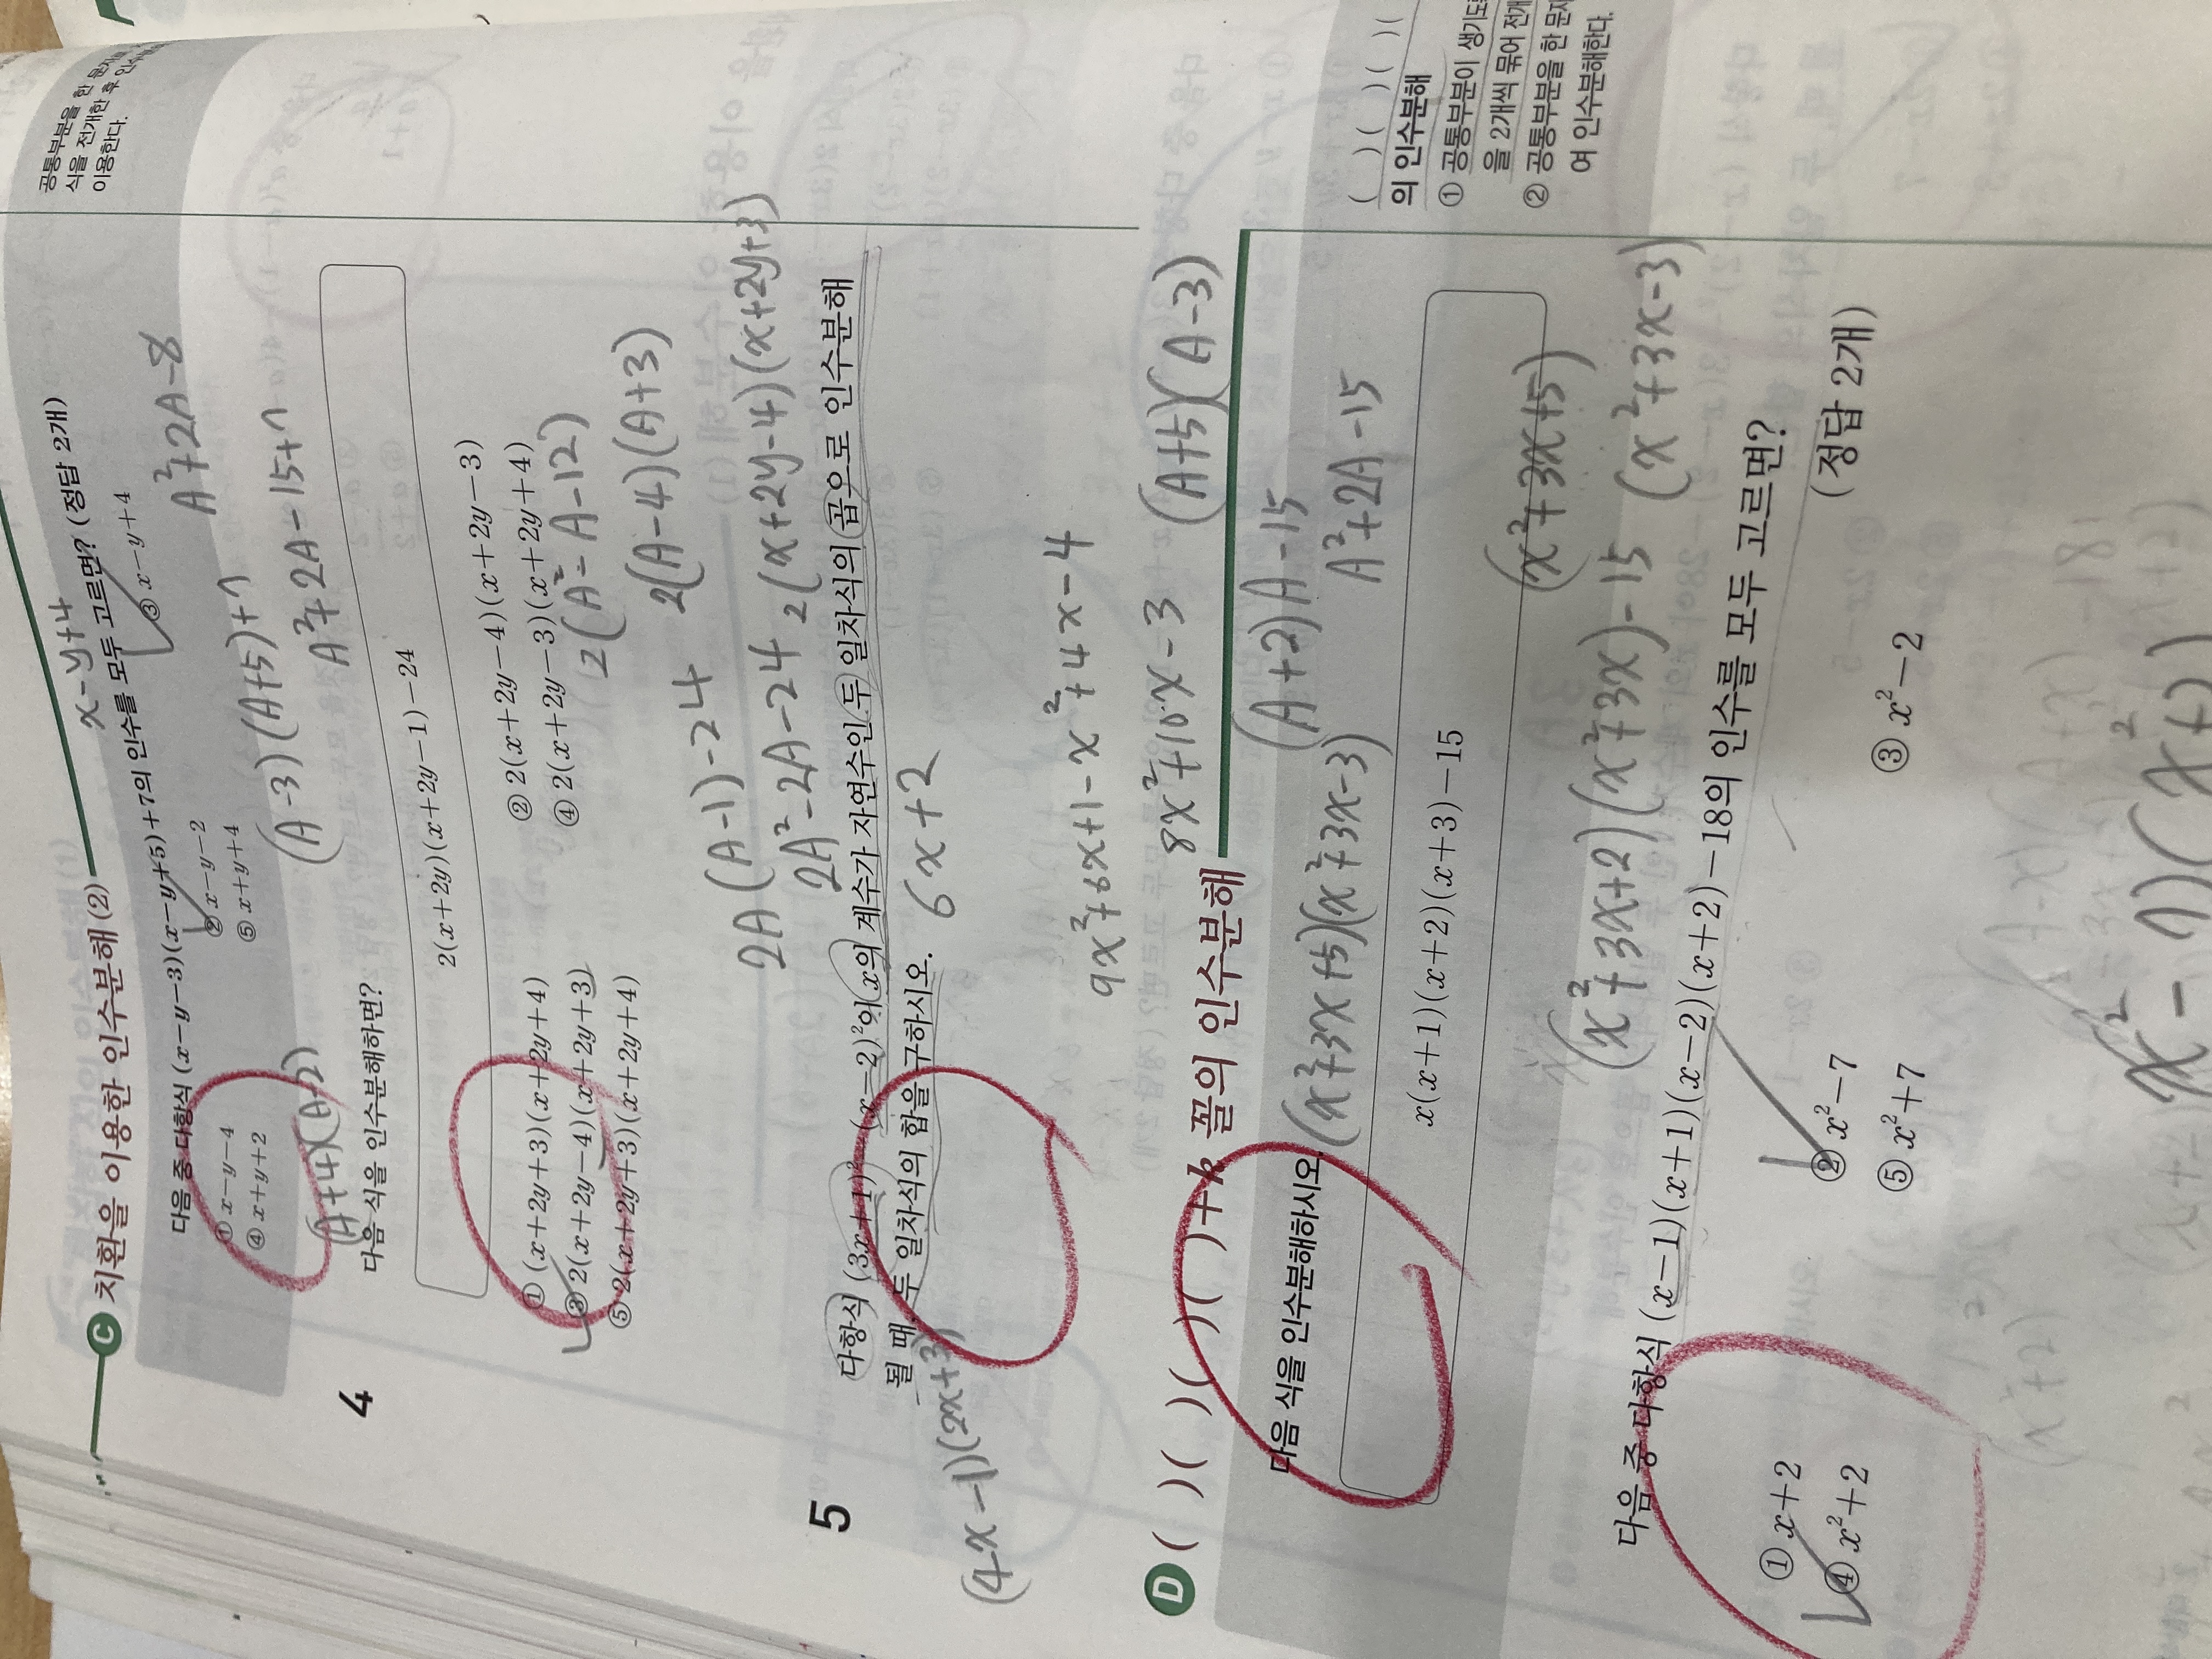 C 치환을 이용한 인수분해 (2)
x-y+4
다음 중 다항식 (x-y-3)(x-y+5)+7의 인수를 모두 고르면? (정답 2개)
① x-y-4 ② x-y-2 ③ x-y+4
④ x+y+2 ⑤ x+y+4
A²+2A-8
(A-3)(A+5)+7
A²+2A-15+7
(A+4)(A-2)
공통부분을 한 문자로
식을 전개한 후
이용한다.
4 다음 식을 인수분해하면?
2(x+2y)(x+2y-1)-24
① (x+2y+3)(x+2y+4) ② 2(x+2y-4)(x+2y-3)
③ 2(x+2y-4)(x+2y+3) ④ 2(x+2y-3)(x+2y+4)
⑤ 2(x+2y+3)(x+2y+4)
2(A²-A-12)
2(A-4)(A+3)
2A(A-1)-24
2A²-2A-24
2(x+2y-4)(x+2y+3)
5 다항식 (3x+1)²-(x-2)²이 x의 계수가 자연수인 두 일차식의 곱으로 인수분해
될 때, 두 일차식의 합을 구하시오.
6x+2
(4x-1)(2x+3)
9x²+6x+1-x²+4x-4
8x²+10x-3
(A+5)(A-3)
D ( )( )( )( )+k 꼴의 인수분해
다음 식을 인수분해하시오.
(x²+3x+5)(x²+3x-3)
(A+2)A-15
A²+2A-15
x(x+1)(x+2)(x+3)-15
(x²+3x+5)
(x²+3x+2)(x²+3x)-15
(x²+3x-3)
( )( )( )( )
의 인수분해
① 공통부분이 생기도록
을 2개씩 묶어 전개
② 공통부분을 한 문자
여 인수분해한다.
다음 중 다항식 (x-1)(x+1)(x-2)(x+2)-18의 인수를 모두 고르면?
(정답 2개)
① x+2 ② x²-7 ③ x²-2
④ x²+2 ⑤ x²+7